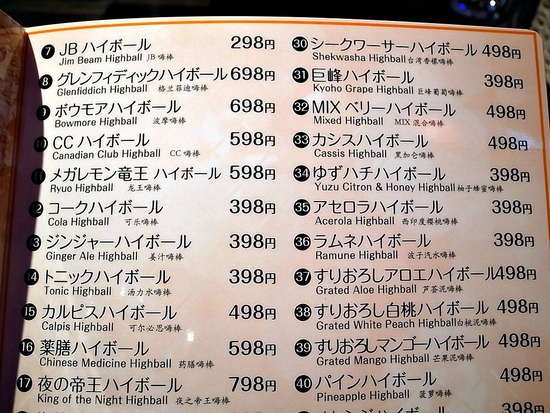 7 JBハイボール 298円
Jim Beam Highball JB嗨棒
8 グレンフィディックハイボール 698円
Glenfiddich Highball 格兰菲迪嗨棒
9 ボウモアハイボール 698円
Bowmore Highball 波摩嗨棒
10 CCハイボール 598円
Canadian Club Highball CC嗨棒
11 メガレモン竜王 ハイボール 598円
Ryuo Highball 龙王嗨棒
12 コークハイボール 398円
Cola Highball 可乐嗨棒
13 ジンジャーハイボール 398円
Ginger Ale Highball 姜汁嗨棒
14 トニックハイボール 398円
Tonic Highball 汤力水嗨棒
15 カルピスハイボール 498円
Calpis Highball 可尔必思嗨棒
16 薬膳ハイボール 598円
Chinese Medicine Highball 药膳嗨棒
17 夜の帝王ハイボール 798円
King of the Night Highball 夜之帝王嗨棒
30 シークワーサーハイボール 498円
Shekwasha Highball 台湾香檬嗨棒
31 巨峰ハイボール 398円
Kyoho Grape Highball 巨峰葡萄嗨棒
32 MIXベリーハイボール 498円
Mixed Highball MIX混合嗨棒
33 カシスハイボール 498円
Cassis Highball 黑加仑嗨棒
34 ゆずハチハイボール 498円
Yuzu Citron & Honey Highball 柚子蜂蜜嗨棒
35 アセロラハイボール 498円
Acerola Highball 西印度樱桃嗨棒
36 ラムネハイボール 498円
Ramune Highball 波子汽水嗨棒
37 すりおろしアロエハイボール 498円
Grated Aloe Highball 芦荟泥嗨棒
38 すりおろし白桃ハイボール 498円
Grated White Peach Highball 白桃泥嗨棒
39 すりおろしマンゴーハイボール 498円
Grated Mango Highball 芒果泥嗨棒
40 パインハイボール 498円
Pineapple Highball 菠萝嗨棒